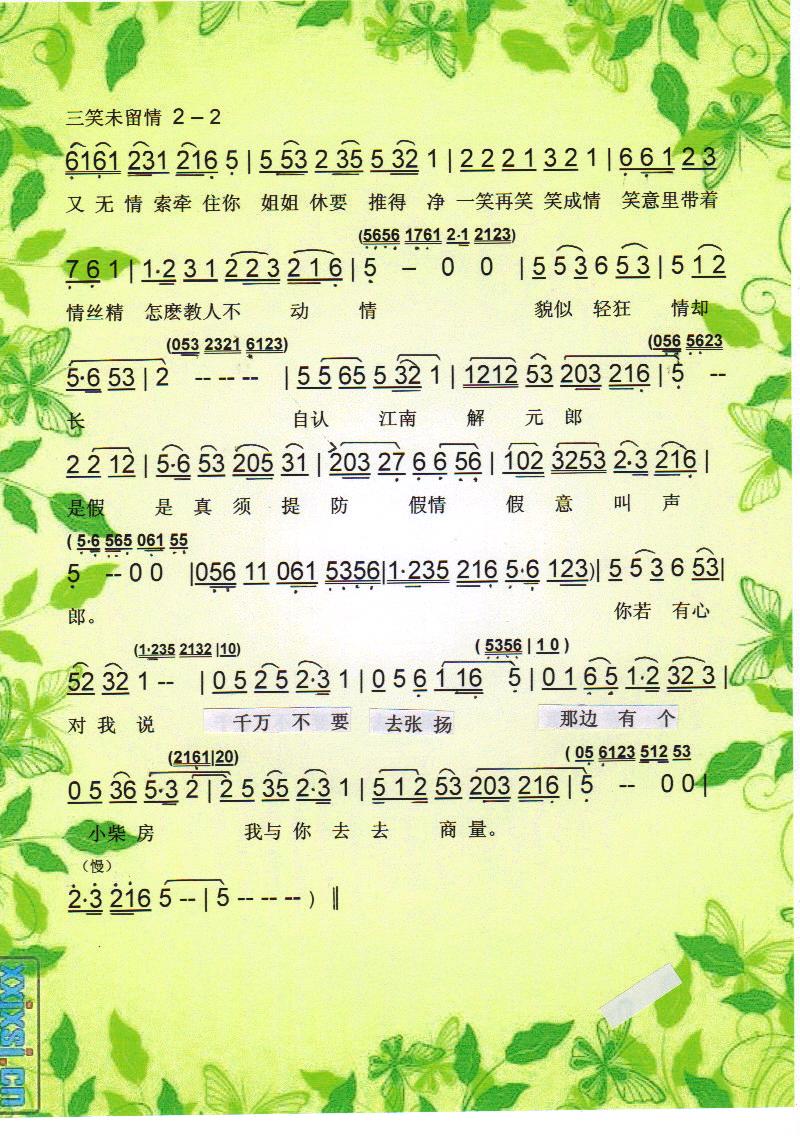 三笑未留情 2 – 2
6161 231 216 5 | 5 53 2 35 5 32 1 | 2 2 2 1 3 2 1 | 6 6 1 2 3
又 无 情 索牵 住你 姐姐 休要 推得 净 一笑再笑 笑成情 笑意里带着
(5656 1761 2·1 2123)
7 6 1 | 1·2 3 1 2 2 3 2 1 6 | 5 – 0 0 | 5 5 3 6 5 3 | 5 1 2
情丝精 怎麽教人不 动 情 貌似 轻狂 情却
(053 2321 6123) (056 5623
5·6 53 | 2 -- -- -- | 5 5 65 5 32 1 | 1212 53 203 216 | 5 --
长 自认 江南 解 元 郎
2 2 12 | 5·6 53 205 31 | 203 27 6 6 56 | 102 3253 2·3 216 |
是假 是 真 须 提 防 假情 假 意 叫 声
( 5·6 565 061 55
5 -- 0 0 |056 11 061 5356|1·235 216 5·6 123)| 5 5 3 6 53|
郎。 你若 有心
(1·235 2132 |10) ( 5356 | 1 0 )
52 32 1 -- | 0 5 2 5 2·3 1 | 0 5 6 1 16 5 | 0 1 6 5 1·2 32 3 |
对 我 说 千万 不 要 去张 扬 那边 有 个
(2161|20) ( 05 6123 512 53
0 5 36 5·3 2 | 2 5 35 2·3 1 | 5 1 2 53 203 216 | 5 -- 0 0 |
小柴 房 我与 你 去 去 商 量。
（慢）
2·3 216 5 -- | 5 -- -- -- ) ‖
xxjxsj.cn